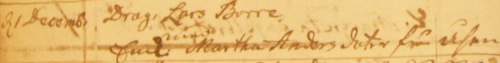 21 Decembr Drag: Lars Borre
Enk: Martha Anders dater frn